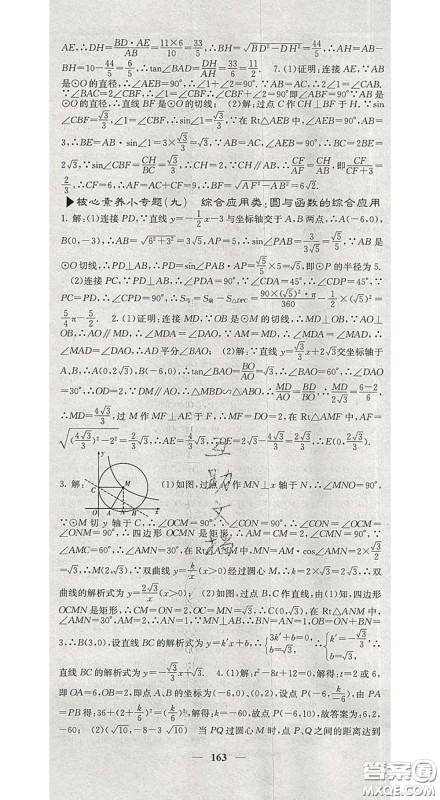 AE,∴DH=BD·AE/AB=11×10/10=33/5,∴BH=√BD²-DH²=44/5,∴AH=AB-
BH=10-44/5=6/5,∴tan∠BAD=DH/AH=33/6=11/2. 7.(1)证明:连接AE,∵AB
是⊙O的直径,∴∠AEB=90°,∴∠1+∠2=90°. ∵AB=AC,∴2∠1=∠CAB.
∵∠BAC=2∠CBF,∴∠1=∠CBF,∴∠CBF+∠2=90°即∠ABF=90°∵AB是
⊙O的直径,∴直线BF是⊙O的切线; (2)解:过点C作CH⊥BF于H.∵sin
∠CBF=√3/3,∠1=∠CBF,∴sin∠1=√3/3,∵在Rt△AEB中,∠AEB=90°,AB
=3,∴BE=AB·sin∠1=3×√3/3=√3,∵AB=AC,∠AEB=90°,∴BC=2BE=
2√3,∵sin∠CBF=CH/BC=√3/3,∴CH=2,∵CH∥AB,∴CF/AF=CH/AB,即CF/(CF+3)=
2/3,∴CF=6,∴AF=AC+CF=9,∴BF=√AF²-AB²=6√2.
▶核心素养小专题(九) 综合应用类:圆与函数的综合应用
1.解:(1)连接PD,∵直线y=-1/2x-3与坐标轴交于A,B两点,∴A(-6,0),
B(0,-3),∴AB=√6²+3²=3√5,∴sin∠BAO=3/3√5=√5/5,即sin∠PAD=√5/5,∵AB是
⊙O切线,∴PD⊥AB,∴PD=sin∠PAB·AP=√5/5×5=√5,即⊙P的半径为5.
(2)连接PC,∵PD⊥AB,∴∠PDA=90°,∵∠CDA=45°,∴∠CDP=45°,∵
PC=PD,∴∠CPD=90°,∴S弓=S扇-S△DPC=90×(√5)²·π/360-1/2×(√5)²=
5/4π-5/2. 2.(1)证明:连接MD,∵OB是⊙M的切线,∴MD⊥OB,∵AO⊥
OB,∴MD∥AO,∴∠MDA=∠DAO,∵AM=MD,∴∠MAD=∠MDA,∴
∠MAD=∠DAO,∴AD平分∠BAO; (2)解:∵直线y=√3/3x+2√3交坐标轴于
A、B,∴A(0,2√3),B(-6,0),∴tan∠BAO=BO/AO=√3,∠BAO=60°,∴∠DAO
=30°,∴OD=2,∵DM∥AO,∴△MBD∽△ABO,∴MD/AO=BD/BO,∴MD/2√3=6-2/6,
∴MD=4√3/3,过M作MF⊥AE于F,∴MF=OD=2,在Rt△AMF中,AF=
√(4√3/3)²-2²=2√3/3,∴AE=4√3/3,∴OE=OA-AE=2√3/3,∴E(0,2√3/3).
3.解: (1)如图,过点M作MN⊥x轴于N,∴∠MNO=90°,
∵⊙M切y轴于C,∴∠OCM=90°,∵∠CON=90°,∴∠CON=∠OCM=
∠ONM=90°,∴四边形OCMN是矩形,∴AM=CM=2,∠CMN=90°,∵
∠AMC=60°,∴∠AMN=30°,在Rt△AMN中,MN=AM·cos∠AMN=2×√3/2
=√3,∴M(2,√3),∵双曲线y=k/x(x>0)经过圆心M,∴k=2×√3=2√3,∴双
曲线的解析式为y=2√3/x(x>0); (2)如图,过点B,C作直线,由(1)知,四边形
OCMN是矩形,∴CM=ON=2,OC=MN=√3,∴C(0,√3),在Rt△ANM中,
∠AMN=30°,AM=2,∴AN=1,∵MN⊥AB,∴BN=AN=1,OB=ON+BN=
3,∴B(3,0),设直线BC的解析式为y=k'x+b,∴{3k'+b=0, b=√3,∴{k'=-√3/3, b=√3,∴
直线BC的解析式为y=-√3/3x+√3. 4.(1)解:t²-8t+12=0,解得:t=2或6,
即OA=6,OB=2,即点A、B的坐标为(-6,0)、(0,2),设点P(-6,k/-6),由PA
=PB得:36+(2+k/6)²=(k/6)²,解得:k=-60,故点P(-6,10),故答案为:6,2,
-60; (2)(√10,-8-3√10) 当PQ过圆心M时,点P、Q之间的距离达到
163
MXQE.COM